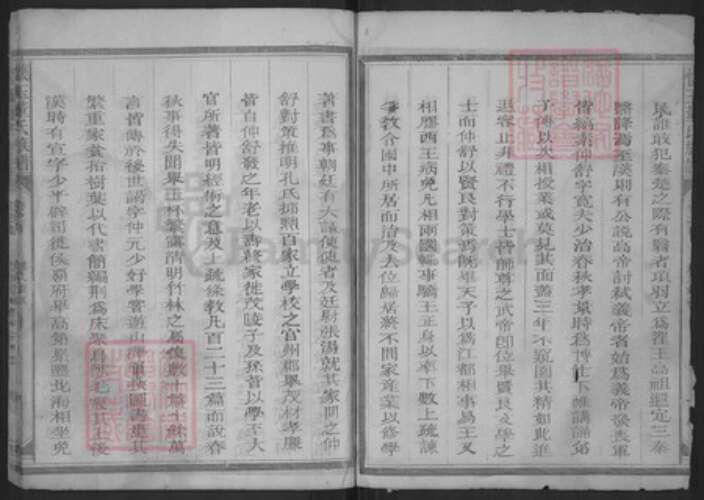 泉誰敢犯秦楚之際有翳者項羽立為翟王高祖還定三秦
翳降焉至漢則有公說高帝討弒義帝者始為義帝發喪軍
皆縞素仲舒字寬夫少治春秋孝景時為博士下帷講誦弟
子傳以久相授業或莫見其面蓋三年不窺園其精如此進
退容止非禮不行學士皆師尊之武帝即位舉賢良文學之
士而仲舒以賢良對策焉既畢天子以為江都相事易王又
相膠西王病免凡相兩國輒事驕王正身以率下數上疏諫
爭教令國中所居而治及去位歸居終不問家產業以修學
著書為事朝廷有大議使使者及廷尉張湯就其家問之仲
舒對策推明孔氏抑黜百家立學校之官州郡舉茂材孝廉
皆自仲舒發之年老以壽終家徙茂陵子及孫皆以學至大
官所著皆明經術之意及上疏條教凡百二十三篇而說春
秋事得失聞舉玉杯繁露清明竹林之屬復數十篇十餘萬
言皆傳於後世 字仲元少好學嘗遊山 圖書 其
繁重家貧拾樹葉以代書簡編荆為床 後
漢時有宣字少平辟司徒侯霸府舉高第累遷北海相坐免